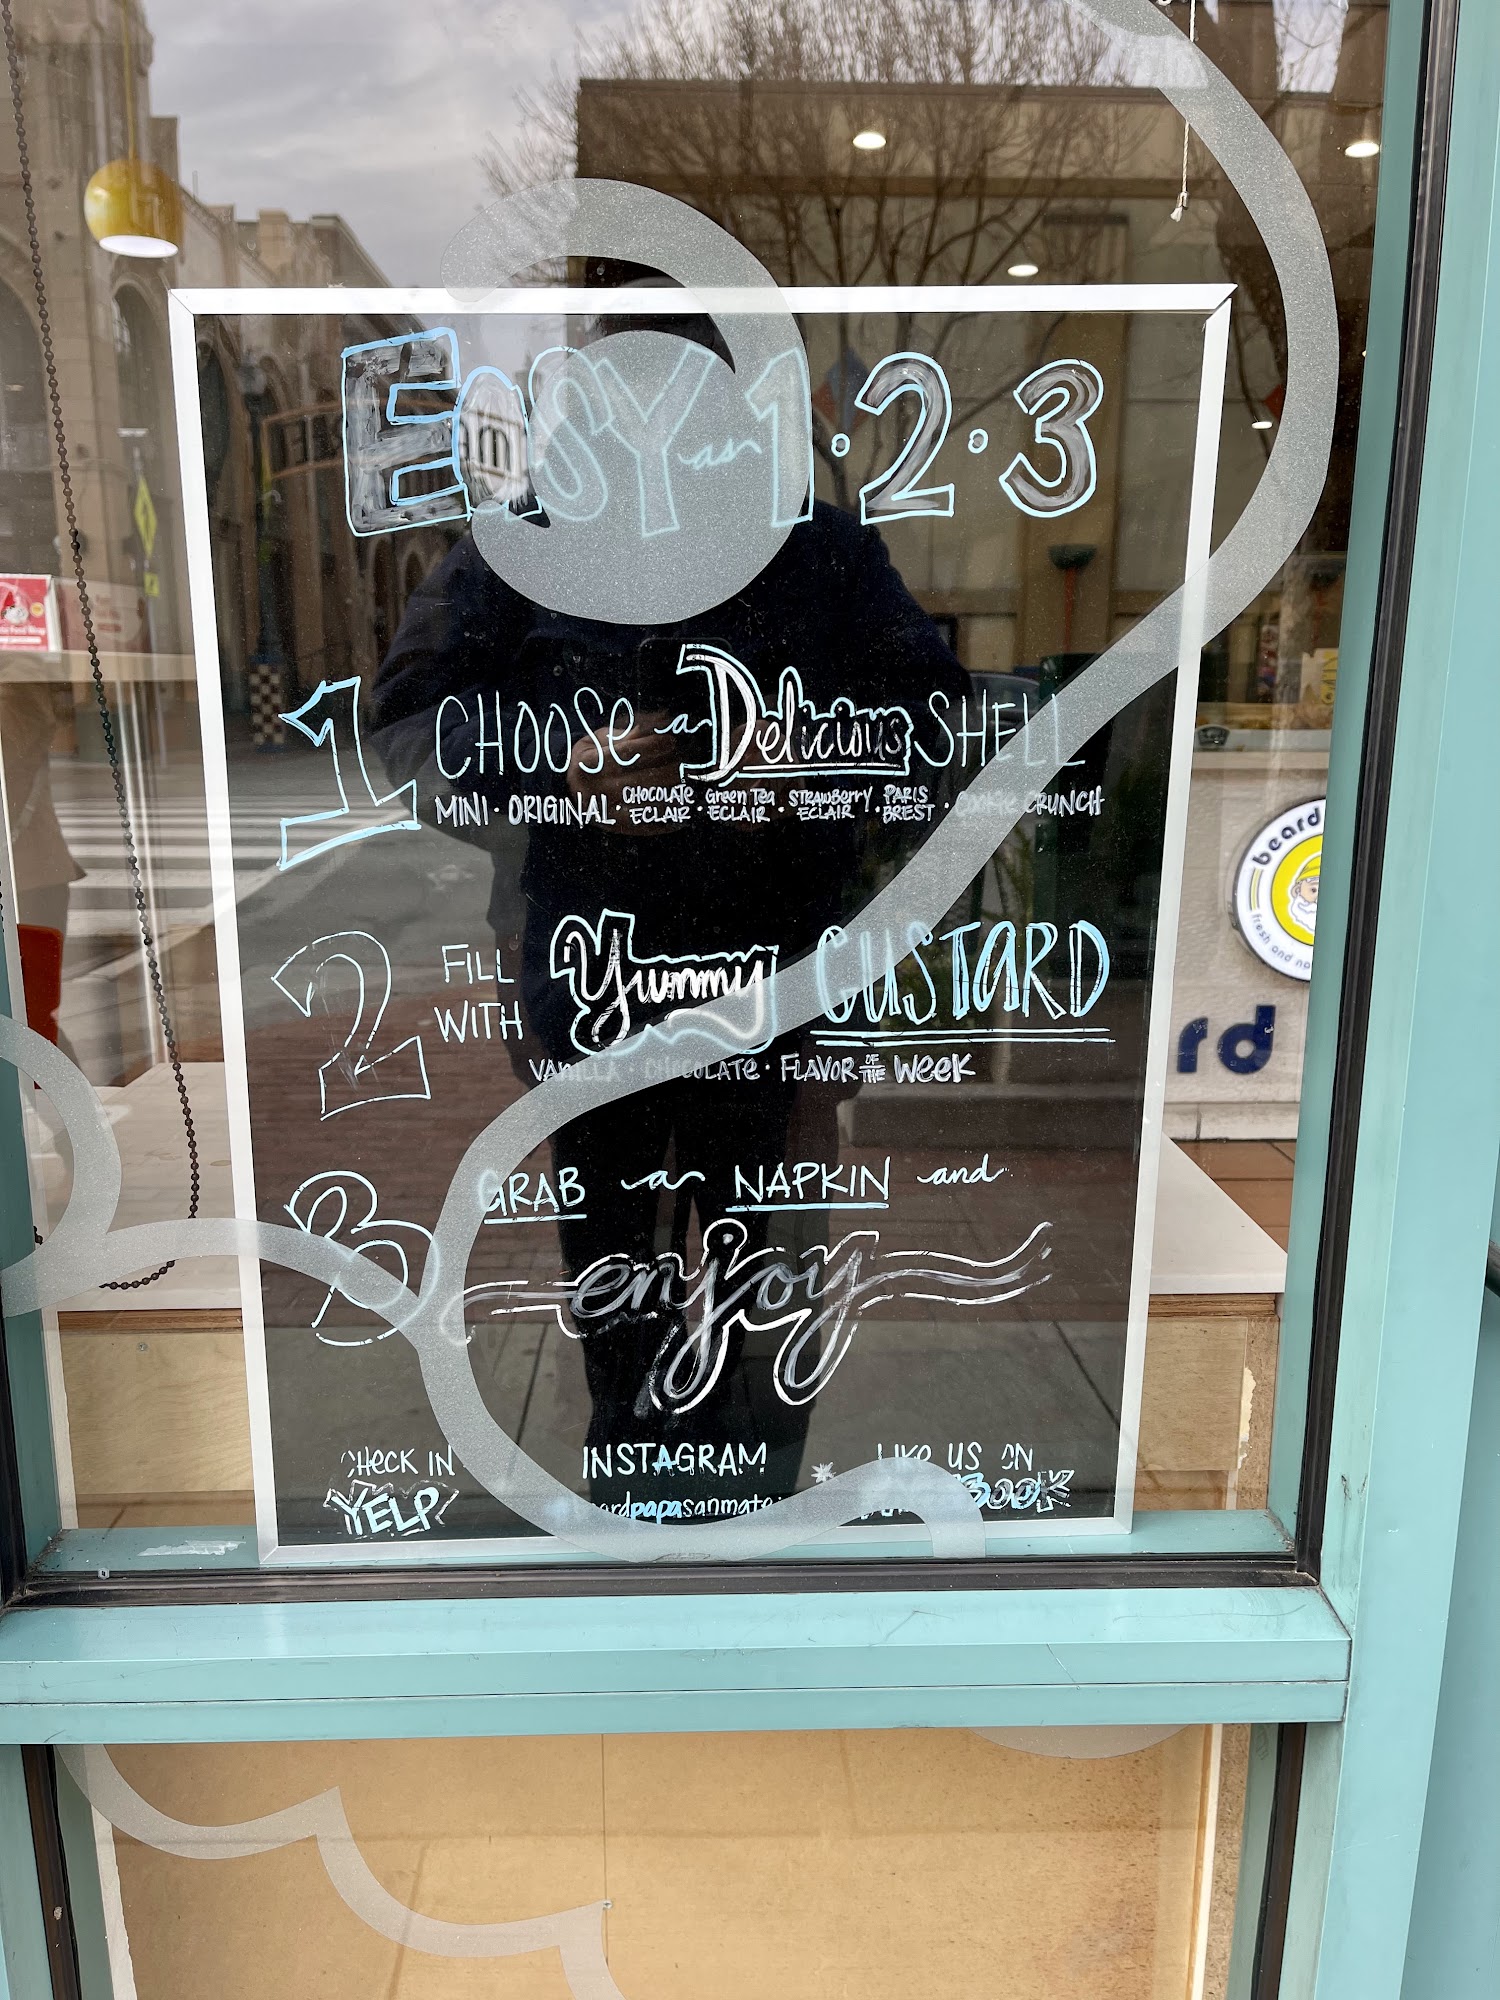 EASY as 1·2·3
1 CHOOSE a Delicious SHELL
MINI · ORIGINAL · CHOCOLATE ECLAIR · Green Tea ECLAIR · STRAWBERRY ECLAIR · PARIS BREST · COOKIE CRUNCH
2 FILL WITH Yummy CUSTARD
VANILLA · CHOCOLATE · FLAVOR OF THE WEEK
3 GRAB a NAPKIN and
enjoy
CHECK IN
YELP
INSTAGRAM
beardpapasanmateo
LIKE US ON
FACEBOOK
beard
fresh and na
rd